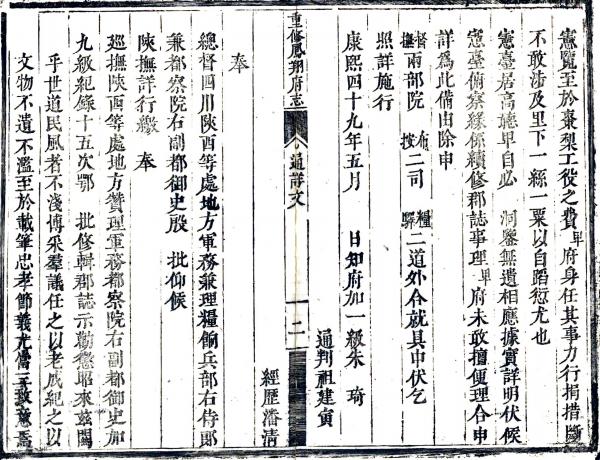 憲覽至於棗梨工役之費卑府身任其事力行捐措斷
不敢涉及里下一絲一粟以自蹈愆尤也
憲臺居高聽卑自必 洞鑒無遺相應據實詳明伏候
憲臺俯察緣係續修郡誌事理卑府未敢擅便理合申
詳為此備由除申
督撫兩部院 布按二司 糧驛二道外合就具申伏乞
照詳施行
康熙四十九年五月 日知府加一級朱琦
通判祖建寅
經歷潘清
重修鳳翔府志
通詳文
二
奉
總督四川陝西等處地方軍務兼理糧餉兵部右侍郎
兼都察院右副都御史殷 批仰候
陝撫詳行繳 奉
巡撫陝西等處地方贊理軍務都察院右副都御史加
九級紀錄十五次鄂 批修輯郡誌示勸懲昭來茲關
乎世道民風者不淺博采羣議任之以老成紀之以
文物不遺不濫至於載筆忠孝節義尤當三致意焉